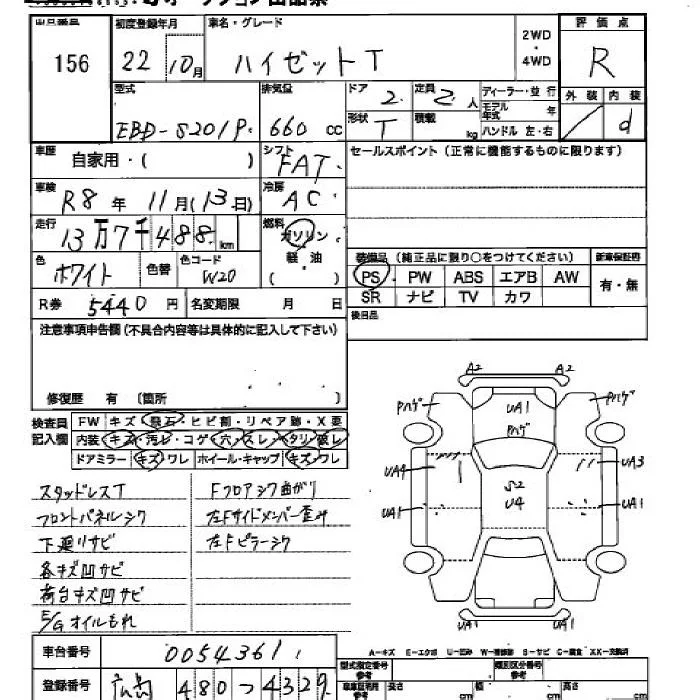 出品番号 初度登録年月 車名・グレード 評価点
156 22年10月 ハイゼットT 2WD・4WD R
型式 排気量 ドア 定員 ディーラー・並行 外装 内装
EBD-S201P 660cc 2 2人 モデル年式 年 d
形状 T 積載 kg ハンドル 左・右
車歴 自家用・( ) シフト FAT セールスポイント(正常に機能するものに限ります)
車検 R8年11月(13日) 冷房 AC
走行 13万7千488km 燃料 ガソリン 軽油 ( )
色 ホワイト 色替 色コード W20
装備品(純正品に限り○をつけてください) 新車保証書
PS PW ABS エアB AW 有・無
SR ナビ TV カワ
R券 5440円 名変期限 月 日 後日品
注意事項申告欄(不具合内容等は具体的に記入して下さい)
修復歴 有 〔箇所 〕
検査員記入欄 FW キズ・飛石・ヒビ割・リペア跡・X要
内装 キズ・汚レ・コゲ・穴・スレ・タリ・破レ
ドアミラー キズ・ワレ ホイール・キャップ キズ・ワレ
A2 A2
Pハゲ UA1 Pハゲ
Pハゲ
UA4 S2 UA3
UA1 U4 UA1
UA1 UA1
スタッドレスT Fフロアシワ曲がり
フロントパネルシワ 左Fサイドメンバー歪み
下廻りサビ 左Fピラーシワ
各キズ凹サビ
荷台キズ凹サビ
E/Gオイルもれ
A－キズ E－エクボ U－凹み W－補修跡 S－サビ C－腐食 XX－交換済
車台番号 0054361 型式指定番号 参考 類別区分番号 参考
登録番号 広島 480 つ 4329 長さ cm 幅 cm 高さ cm